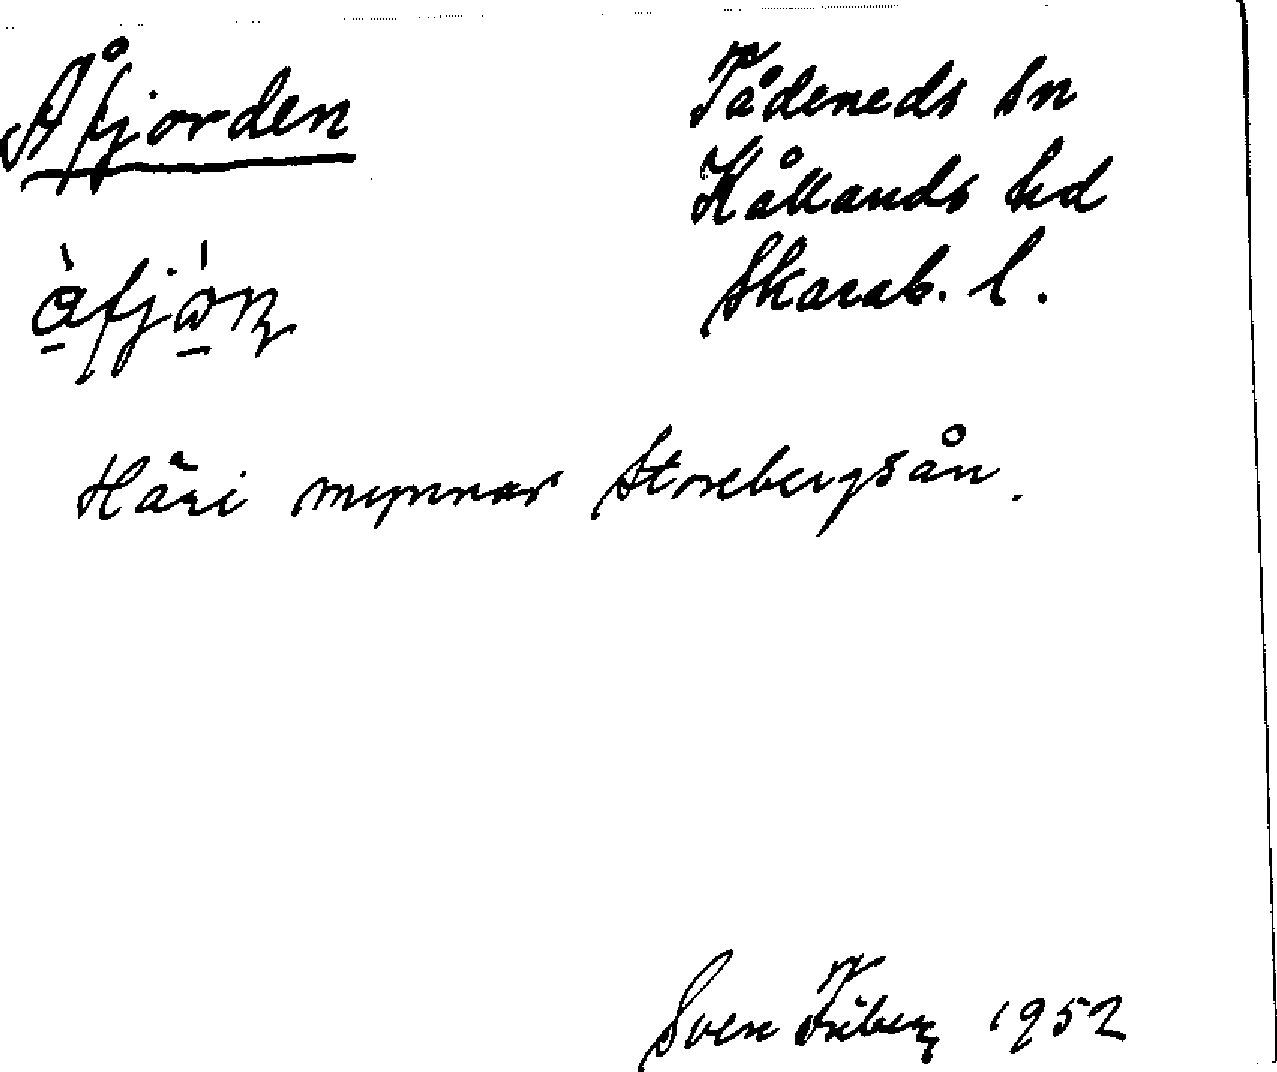 Åfjorden
Tådeneds sn
Kållands hd
Skarab. l.
Häri mynnar Storebergsån.
Sven 1952